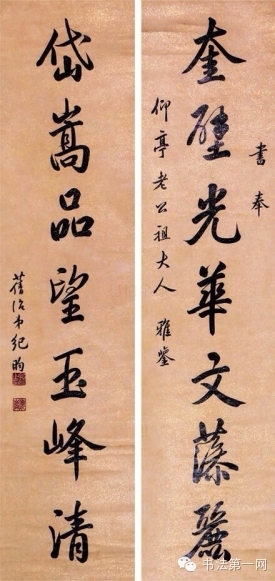 書奉
奎壁光華文藻麗
仰亭老公祖大人 雅鑒
岱嵩品望玉峰清
舊治弟紀昀
书法第一网